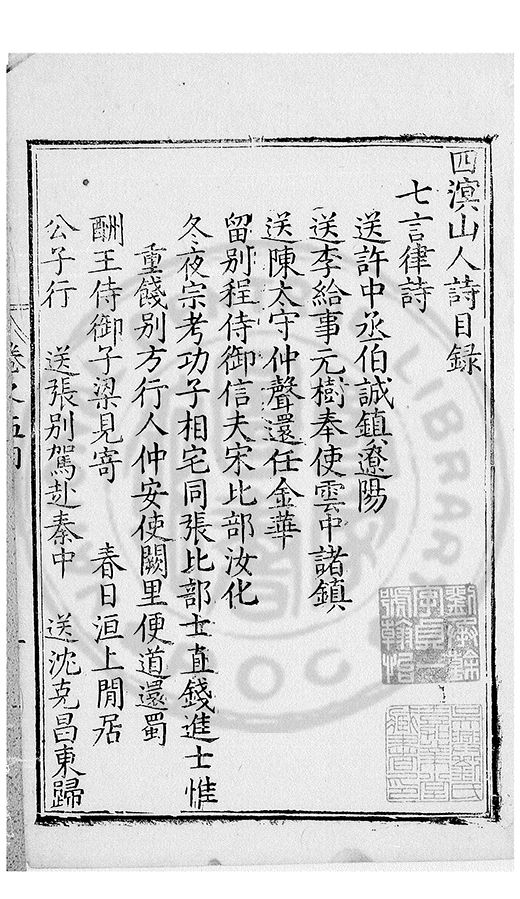 四溟山人詩目録
七言律詩
送許中丞伯誠鎮遼陽
送李給事元樹奉使雲中諸鎮
送陳太守仲聲還任金華
留別程侍御信夫宋比部汝化
冬夜宗考功子相宅同張比部士直錢進士惟
重餞別方行人仲安使闕里便道還蜀
酬王侍御子梁見寄 春日洹上閒居
公子行 送張別駕赴秦中 送沈克昌東歸